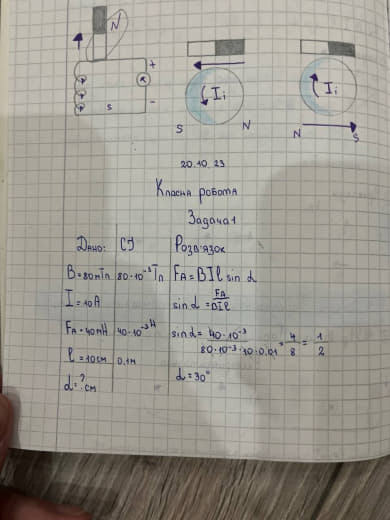 N
+
S
-
I i
I i
S N
N S
20.10.23
Класна робота
Задача 1
Дано: СІ Розв'язок
B = 80мТл 80·10⁻³Тл FA = BIl sin α
I = 10А sin α = FA/BIl
FA = 40мН 40·10⁻³Н sin α = 40·10⁻³/80·10⁻³·10·0,01 = 4/8 = 1/2
l = 10см 0,1м
α = ? см α = 30°